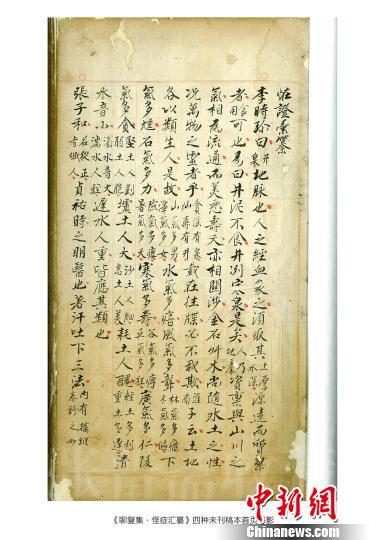 怪證彙纂
李時珍曰井泉地脉也人之經血象之須取其土厚水深源遠而質潔
者食用可也易曰井泥不食井冽寒泉是矣人乃地產資稟與山川之
氣相為流通而美惡壽夭亦相關涉金石艸木尚隨水土之性
况萬物之靈者乎貪淫有泉仙壽有井載在往牒必不我欺淮南子云土地
各以類生人是故山氣多男澤氣多女水氣多瘖風氣多聾林氣多癃木氣多傴
氣多尰石氣多力險阻氣多癭暑氣多夭寒氣多壽谷氣多痺丘氣多狂廣氣多仁陵
氣多貪堅土人剛弱土人脆壚土人大沙土人細息土人美耗土人醜輕土多利重土多遲清
水音小濁水音大湍水人輕遲水人重皆應其類也
張子和名從正考城人貞祐時之明醫也著汗吐下三法內有擒縱卷舒之妙
中新网
《聊复集·怪症汇纂》四种未刊稿本首页书影